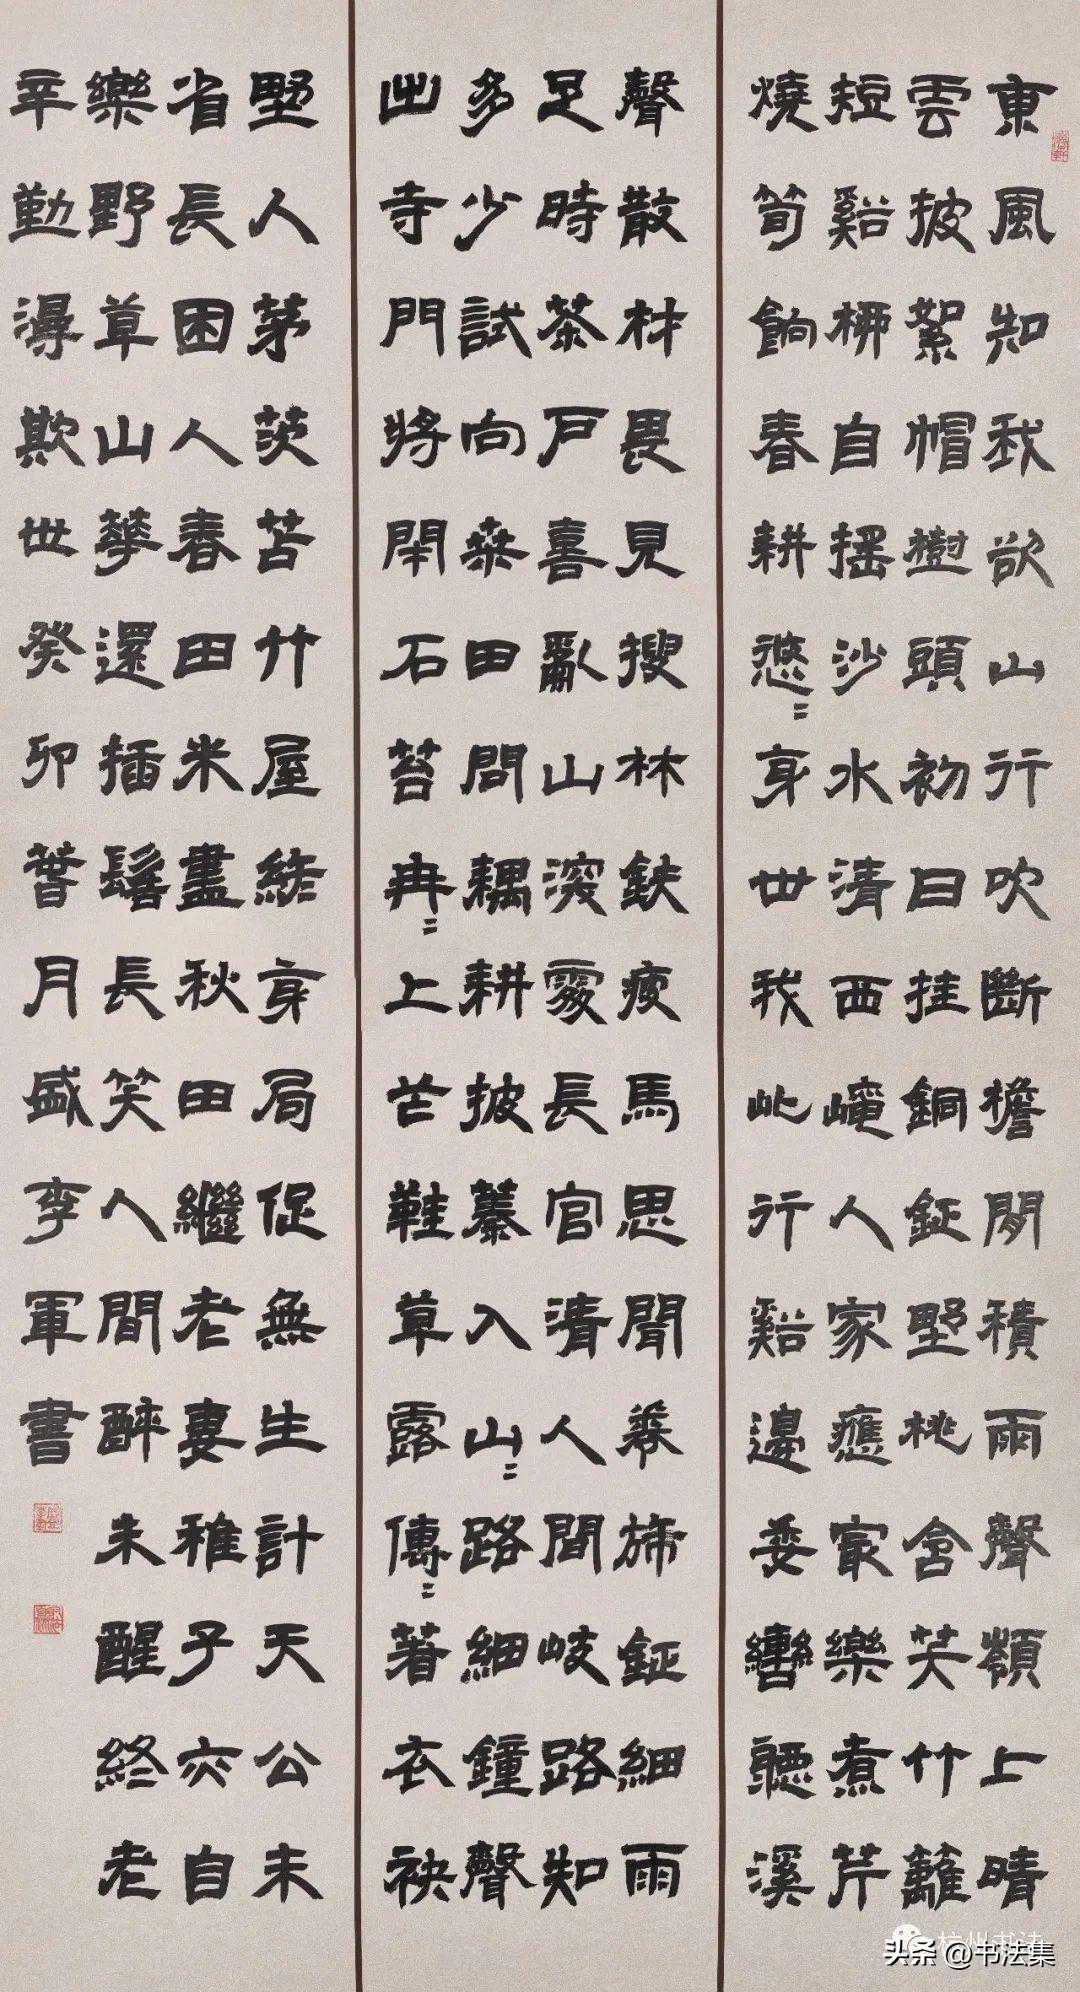 東風知我欲山行吹斷檐間積雨聲嶺上晴
雲披絮帽樹頭初日挂銅鉦野桃含笑竹籬
短谿柳自搖沙水清西崦人家應最樂煮芹
燒筍餉春耕悠〻身世我此行谿邊委轡聽溪
聲散材畏見搜林鈇疲馬思聞卷旆鉦細雨
足時茶戶喜亂山深處長官清人間岐路知
多少試向桑田問耦耕披蓁入山〻路細鐘聲
出寺門將閇石苔冉〻上芒鞋草露漙〻著衣袂
野人茅茨苦竹屋結亭局促無生計天公未
省長困人春田米盡秋田繼老妻稚子亦自
樂野草山華還插髻長笑人間醉未醒終老
辛勤淂欺世癸卯暮月盛李軍書
杭州书法
头条 @书法集